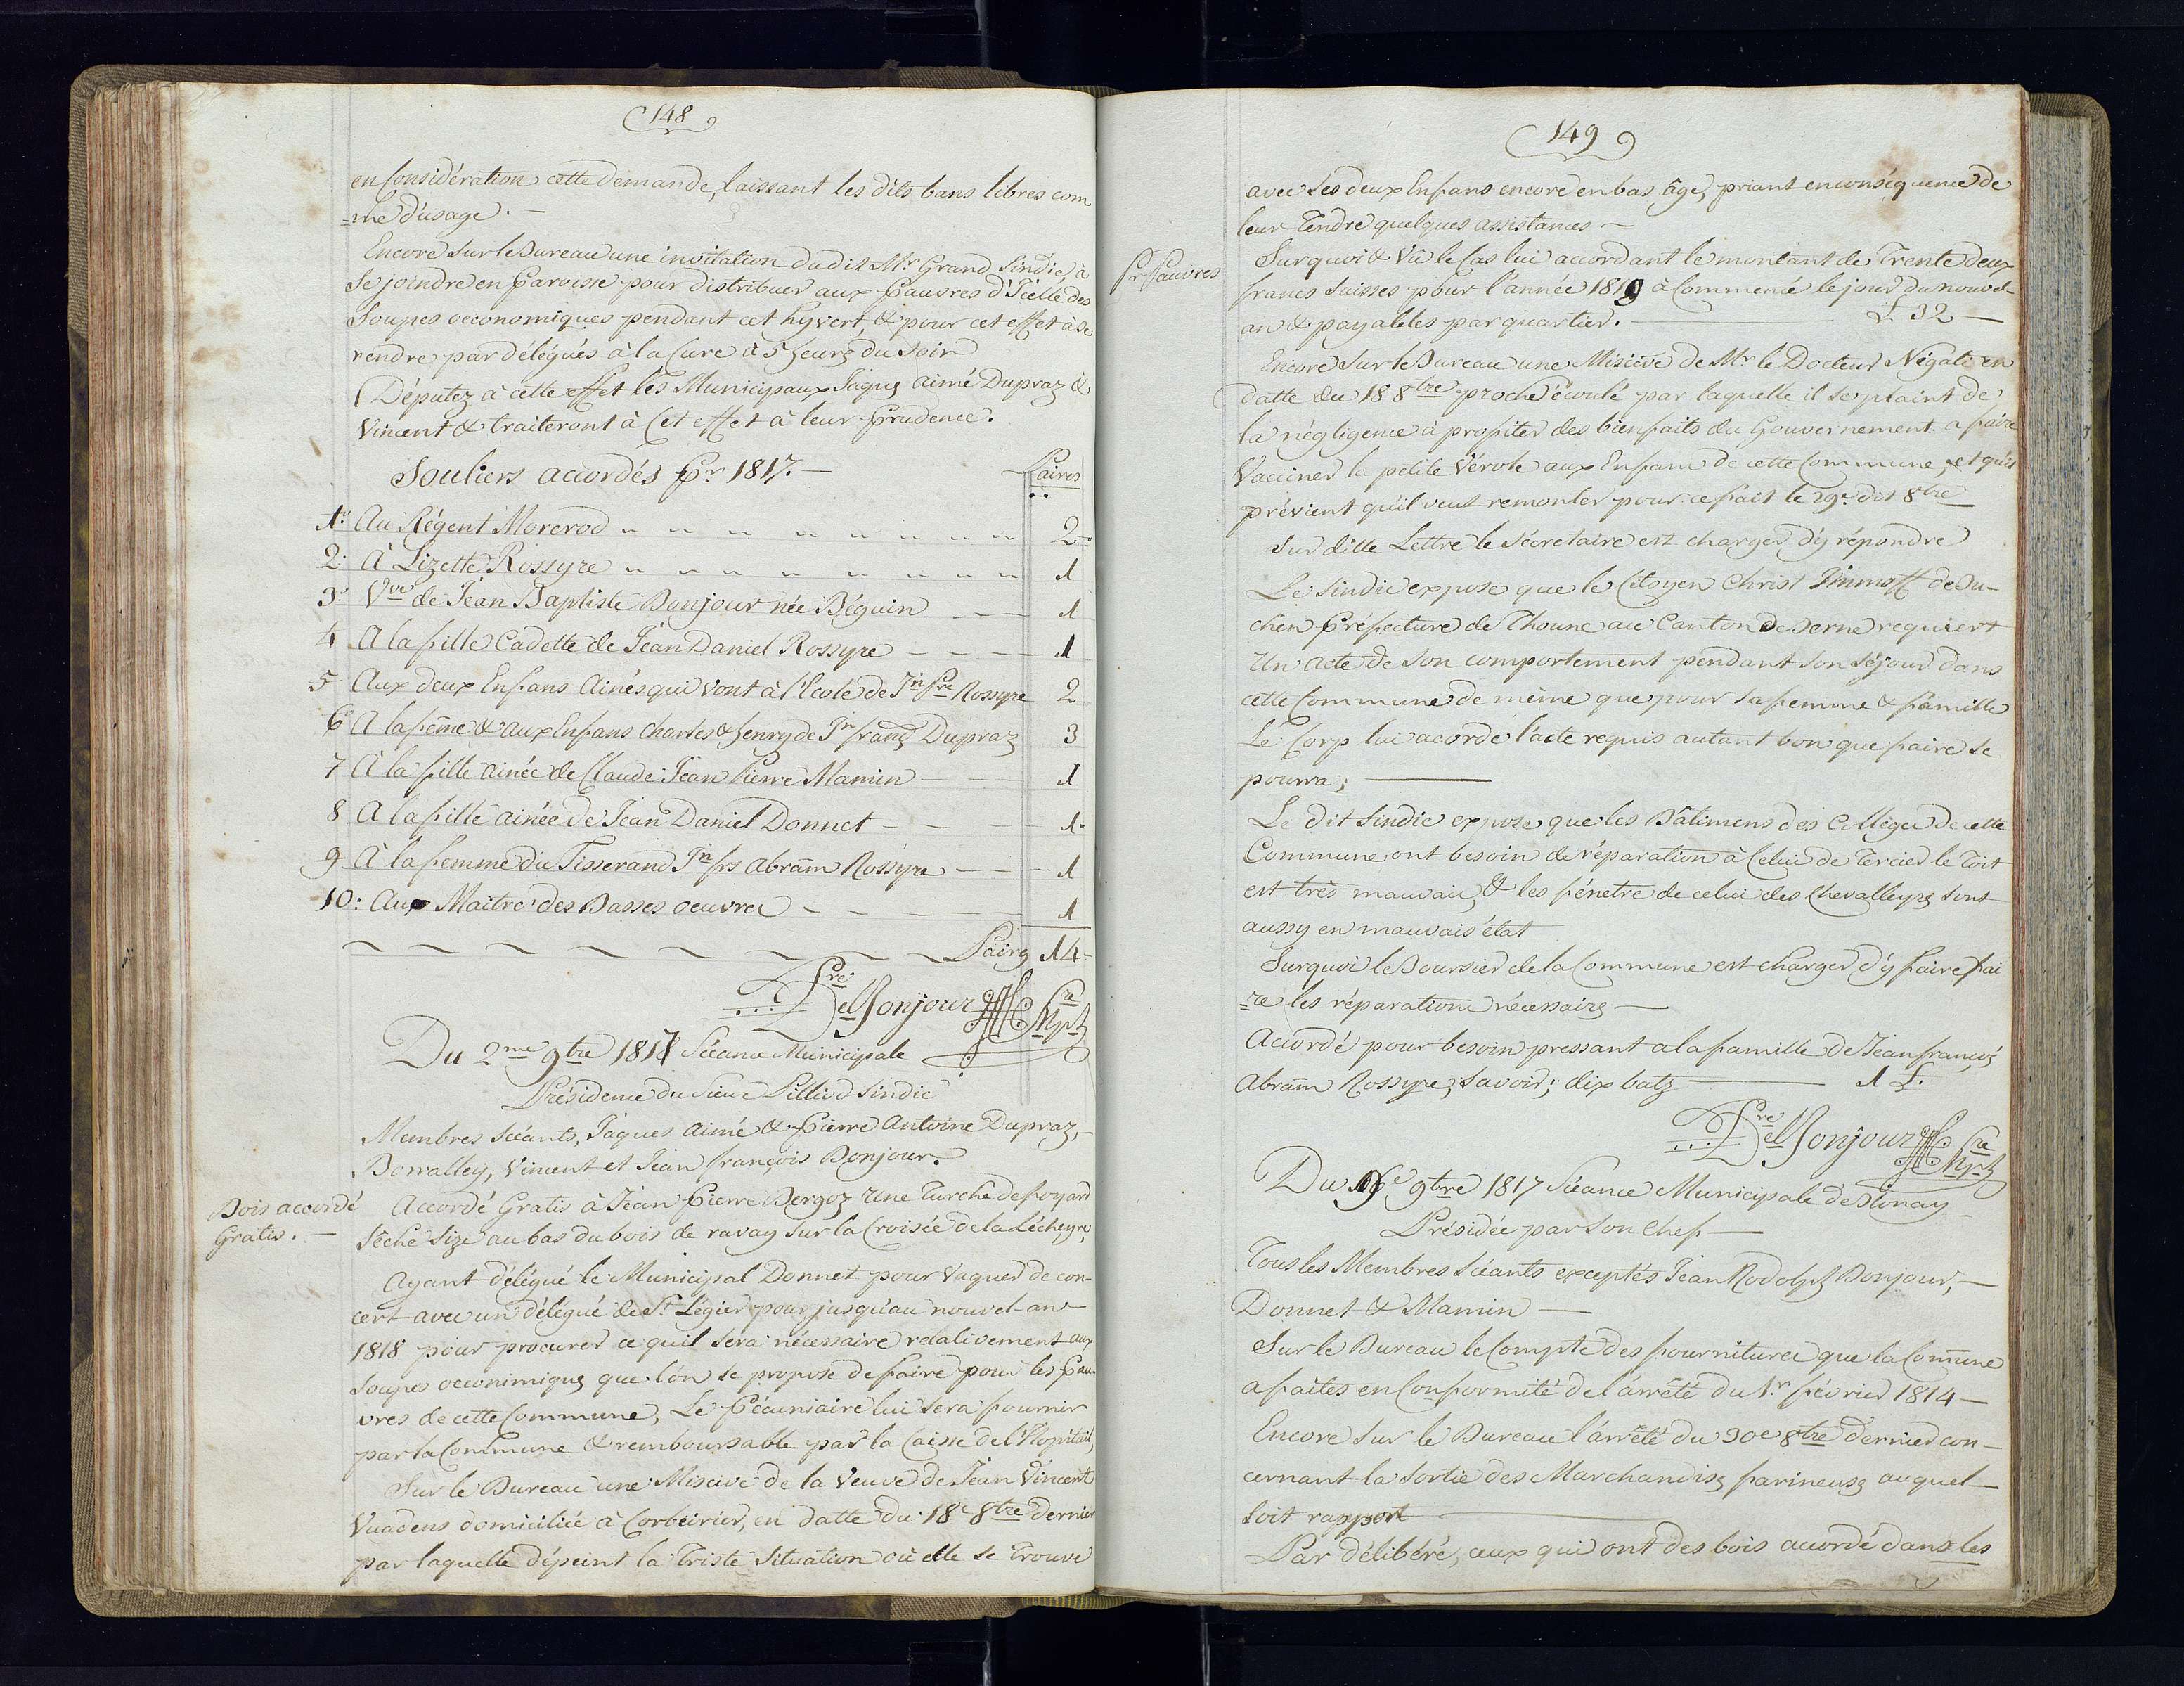 148
en Considération cette demande, laissant les dits bans libres com
=me d'usage. —
Encore Sur le Bureau une invitation dudit Mr Grand Sindic à
Se joindre en Paroisse pour distribuer aux Pauvres d'Icelle des
Soupes oeconomiques pendant cet hyvert, & pour cet effet à se
rendre par délégués à la Cure à 5 heurs du Soir
Députez à cette effet les Municipaux Jaqus aimé Dupraz &
Vincent & traiteront à Cet effet à leur Prudence.
Souliers accordés Pr 1817. — Paires
1.° Au Régent Morerod 2
2.° À Lizette Rossyre 1
3.° Vve de Jean Baptiste Bonjour née Béguin 1
4 A la fille Cadette de Jean Daniel Rossyre 1
5 Aux deux Enfans Ainés qui vont à l'Ecole de Jn Pre Rossyre 2
6 A la feme & aux Enfans Charles & henry de Jn franç Dupraz 3
7 À la fille ainée de Claude Jean Pierre Mamin 1
8 A la fille ainée de Jean Daniel Donnet 1
9 À la femme du Tisserand Jn frs Abram Rossyre 1
10: Aux Maitre des Basses oeuvres 1
Pairs 14
Bonjour
Du 2me 9bre 1817 Séance Municipale
Présidence du Sieur Pilliod Sindic
Membres Séants, Jaques aimé & Pierre Antoine Dupraz,
Bonvalley, Vincent et Jean françois Bonjour.
Bois accordé
Gratis. —
Accordé Gratis à Jean Pierre Bergoz Une Turche de foyard
Sêche Size au bas du bois de ravay Sur la Croisée de la Lécheyre,
Ayant délégué le Municipal Donnet pour Vaquer de con-
cert avec un délégué de St Légier pour jusqu'au nouvel-an
1818 pour procurer ce quil Sera nécessaire relativement aux
Soupes oeconimiqus que l'on se propose de faire pour les Pau-
vres de cette Commune, Le Pécuniaire lui Sera fournir
par la Commune & remboursable par la Caisse de l'Hopitail,
Sur le Bureau une Miscive de la Veuve de Jean Vincent
Vuadens domiciliée à Corbeirier, en datte du 18e 8bre dernier
par laquelle dépeint la Triste Situation où elle se Trouve
149
avec Ses deux Enfans encore en bas âge, priant en conséquence de
leur Tendre quelques assistances —
Pr Pauvres
Surquoi & Vû le Cas lui accordant le montant de Trente deux
francs Suisses pour l'année 1819 à Commencé le jour du nouvel-
an & payables par quartier. — L. 32 —
Encore Sur le Bureau une Miscive de Mr le Docteur Négati en
datte du 18 8bre proche écoulé par laquelle il se plaint de
la négligence à profiter des bienfaits du Gouvernement a faire
Vacciner la petite Vérole aux Enfans de cette Commune, et qu'il
prévient qu'il veut remonter pour ce fait le 29e dit 8bre
Sur ditte Lettre le Sécretaire est charger d'y répondre
Le Sindic expose que le Citoyen Christ Immoff de Bu-
chen Préfecture de Thoune au Canton de Berne requiert
Un Acte de Son comportement pendant Son Séjour dans
cette Commune de même que pour Sa femme & famille
Le Corp lui acorde l'acte requis autant bon que faire Se
pourra; —
Le dit Sindic expose que les Bâtimens des Colléges de cette
Commune ont besoin de réparation à Celui de Tercier le Toit
est très mauvais, & les fénetre de celui des Chevalleyrs Sont
aussy en mauvais état
Surquoi le Boursier de la Commune est charger d'y faire fai
=re les réparations nécessaires —
Accordé pour besoin pressant a la famille de Jean françois
Abram Rossyre, Savoir; dix batz — 1 L.
Bonjour
Du 9e 9bre 1817 Séance Municipale de Blonay
Présidée par Son Chef —
Tous les Membres Séants exceptés Jean Rodolph Bonjour, —
Donnet & Mamin —
Sur le Bureau le Compte des fournitures que la Comune
a faites en Conformité de l'arrêté du 1r février 1814 —
Encore Sur le Bureau l'arrêté du 30e 8bre dernier con-
cernant la Sortie des Marchandiss farineuss auquel
Soit rapport —
Par délibéré, ceux qui ont des bois accordé dans les